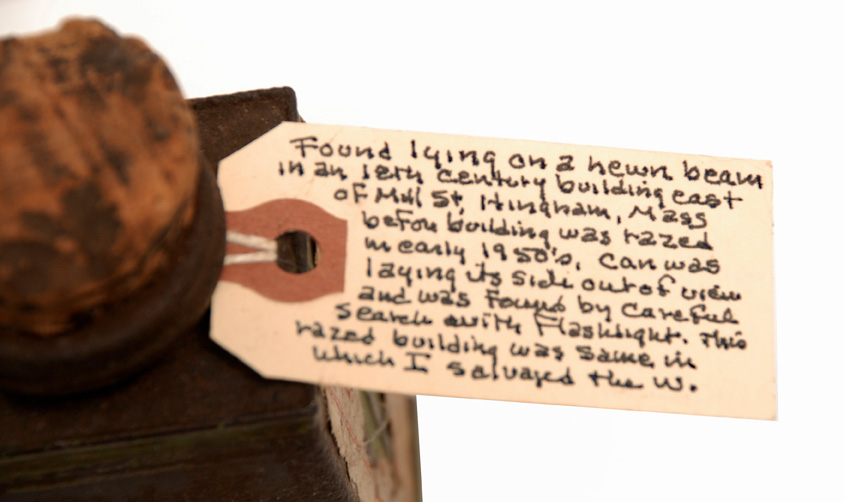 Found lying on a hewn beam
in an 18th century building east
of Mill St, Hingham, Mass
before building was razed
in early 1950's. Can was
laying its side out of view
and was found by careful
search with flashlight. This
razed building was same in
which I salvaged the W.